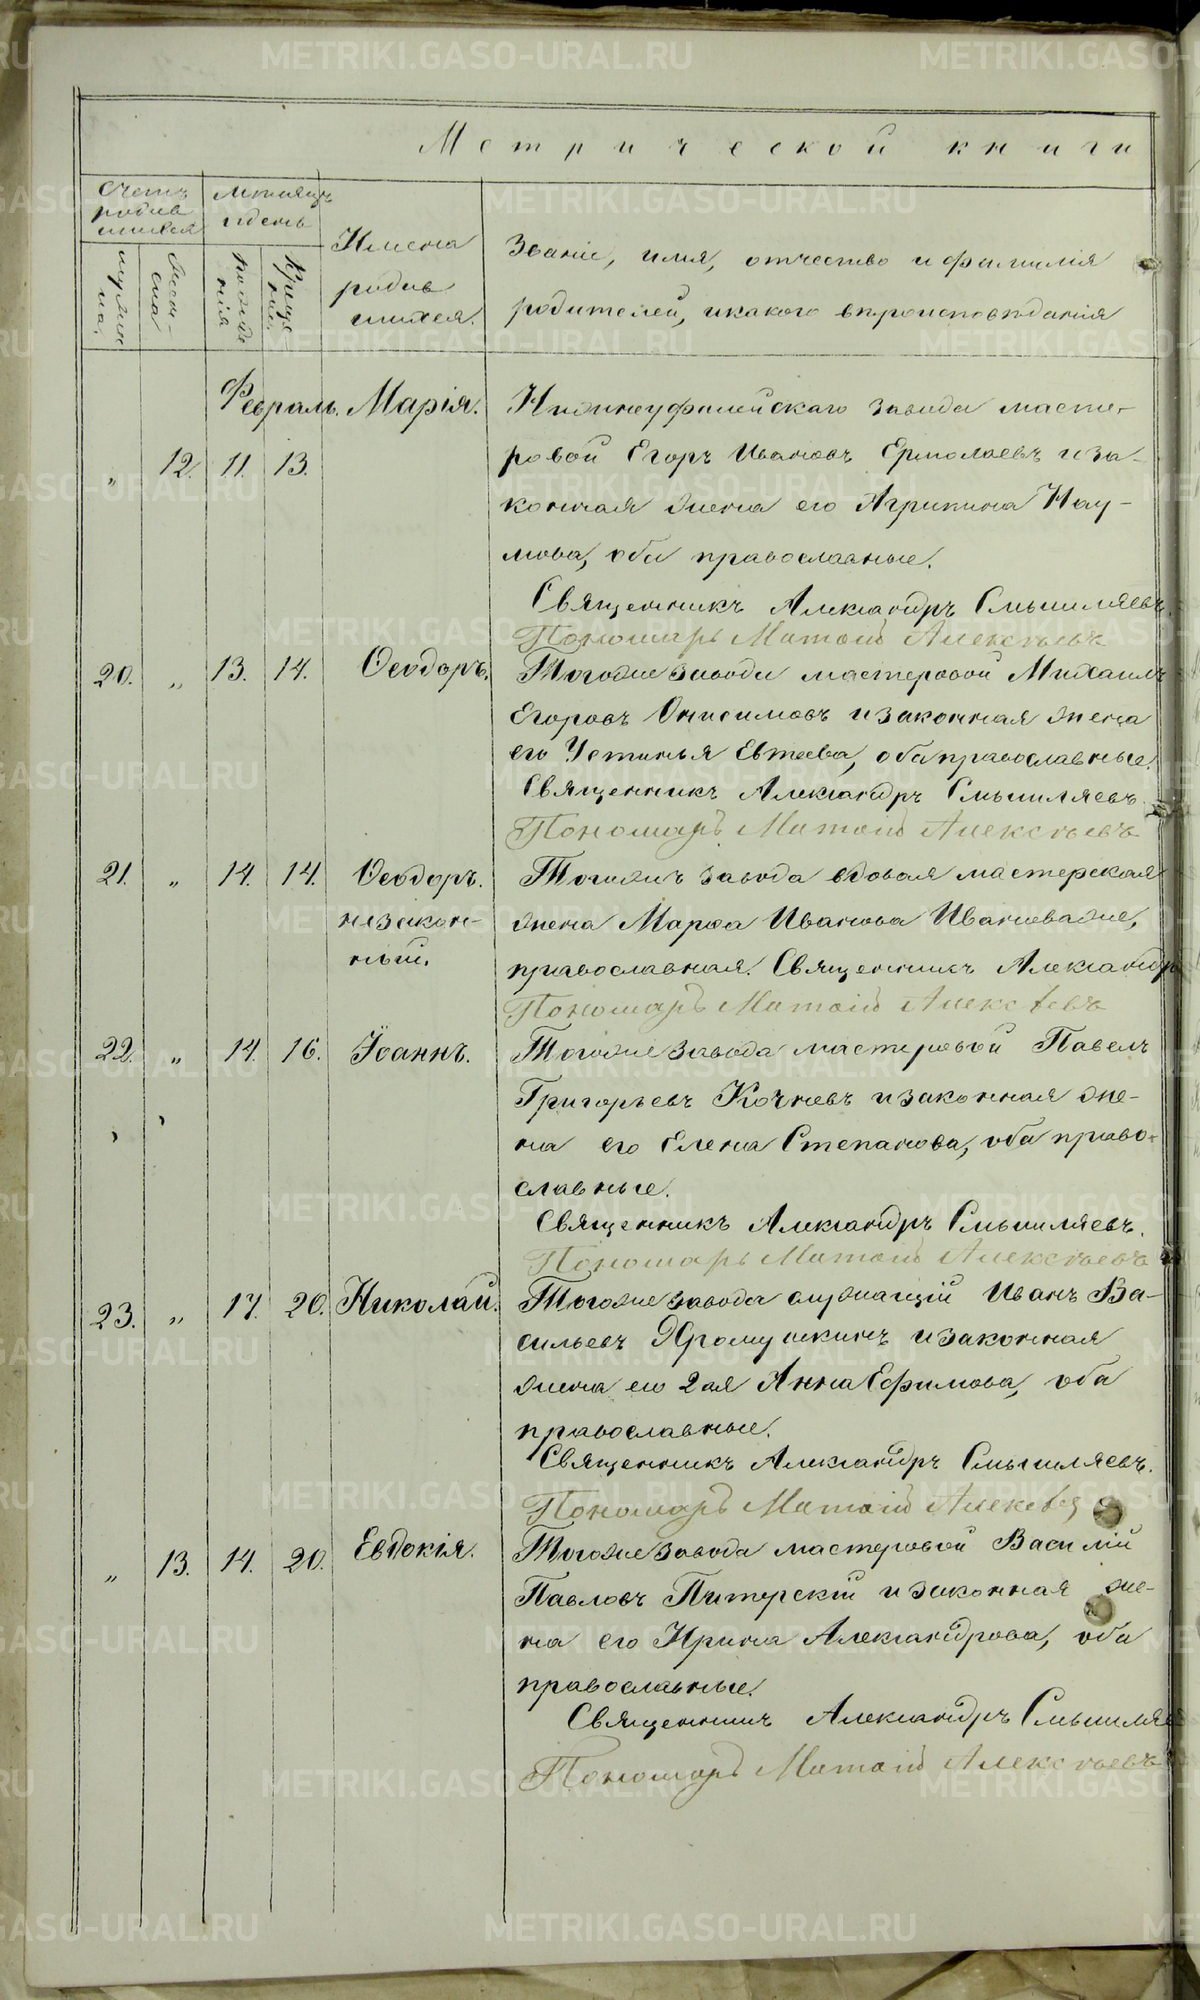 Метрической книги
Счетъ родив шихся
Мѣсяцъ и день
Имена родив шихся.
мужеска
женска
рожденія
крещенія
Званіе, имя, отчество и фамилія
родителей, и какого вѣроисповѣданія
Февраль. Марія. Нижнеуфалейскаго завода масте-
„ 12. 11. 13. ровой Егоръ Ивановъ Ермолаевъ и за-
конная жена его Агрипина Нау-
мова, оба православные.
Священникъ Александръ Смышляевъ
Пономарь Матѳій Алексѣевъ
20. „ 13. 14. Ѳеодоръ. Тогоже завода мастеровой Михаилъ
Егоровъ Онисимовъ и законная жена
его Устинья Евтеева, оба православные.
Священникъ Александръ Смышляевъ
Пономарь Матѳій Алексѣевъ
21. „ 14. 14. Ѳеодоръ. Тогожъ завода вдовая мастерская
незакон- жена Марѳа Иванова Ивановаже,
ный. православная. Священникъ Александръ
Пономарь Матѳій Алексѣевъ
22. „ 14. 16. Іоаннъ. Тогоже завода мастеровой Павелъ
Григорьевъ Кочневъ и законная же-
на его Елена Степанова, оба право-
славные.
Священникъ Александръ Смышляевъ.
Пономарь Матѳій Алексѣевъ
23. „ 17. 20. Николай. Тогоже завода служащій Иванъ Ва-
сильевъ Хромушкинъ и законная
жена его 2ая Анна Ефимова, оба
православные.
Священникъ Александръ Смышляевъ.
Пономарь Матѳій Алексѣев
„ 13. 14. 20. Евдокія. Тогоже завода мастеровой Василій
Павловъ Питерскій и законная же-
на его Ирина Александрова, оба
православные.
Священникъ Александръ Смышляев
Пономарь Матѳій Алексѣевъ
METRIKI.GASO-URAL.RU